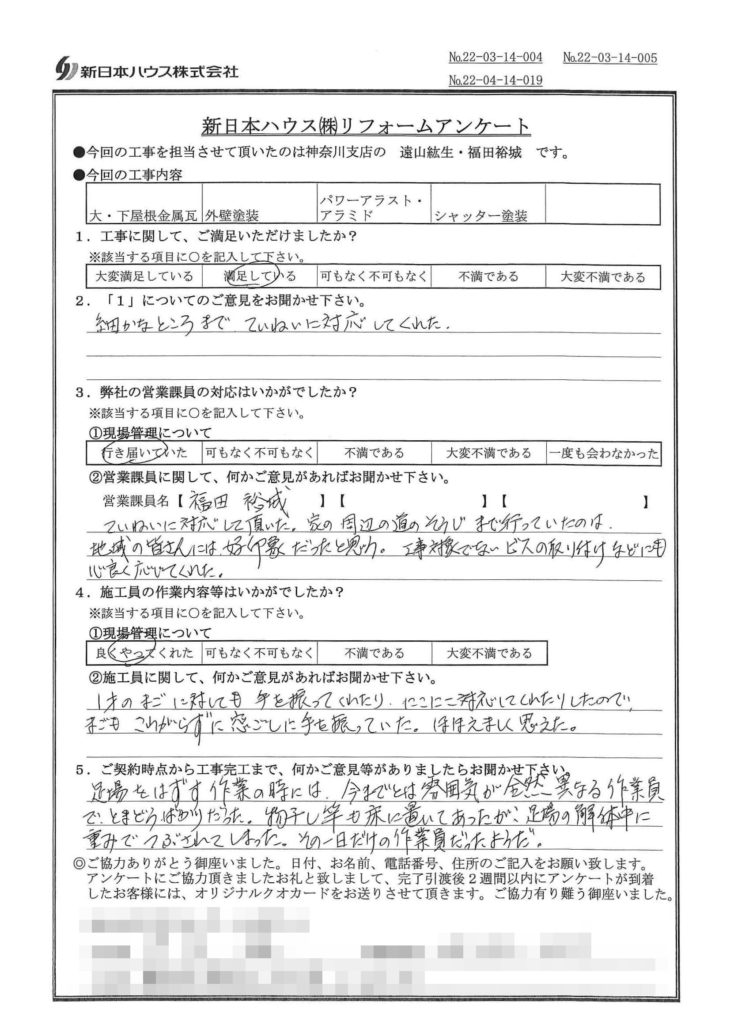 新日本ハウス株式会社
№22-03-14-004 №22-03-14-005
№22-04-14-019
新日本ハウス㈱リフォームアンケート
●今回の工事を担当させて頂いたのは神奈川支店の 遠山紘生・福田裕城 です。
●今回の工事内容
大・下屋根金属瓦 外壁塗装 パワーアラスト・アラミド シャッター塗装
1．工事に関して、ご満足いただけましたか？
※該当する項目に○を記入して下さい。
大変満足している 満足している 可もなく不可もなく 不満である 大変不満である
2．「1」についてのご意見をお聞かせ下さい。
細かなところまで ていねいに対応してくれた。
3．弊社の営業課員の対応はいかがでしたか？
※該当する項目に〇を記入して下さい。
①現場管理について
行き届いていた 可もなく不可もなく 不満である 大変不満である 一度も会わなかった
②営業課員に関して、何かご意見があればお聞かせ下さい。
営業課員名【 福田 裕城 】【 】【 】
ていねいに対応して頂いた。家の周辺の道のそうじまで行っていたのは、
地域の皆さんには好印象だったと思う。工事対象でないビスの取り付けなどにも
心良く応じてくれた。
4．施工員の作業内容等はいかがでしたか？
※該当する項目に○を記入して下さい。
①現場管理について
良くやってくれた 可もなく不可もなく 不満である 大変不満である
②施工員に関して、何かご意見があればお聞かせ下さい。
1才のまごに対しても手を振ってくれたり、にこにこ対応してくれたりしたので、
まごも こわがらずに窓ごしに手を振っていた。ほほえましく思えた。
5．ご契約時点から工事完工まで、何かご意見等がありましたらお聞かせ下さい。
足場をはずす作業の時には、今までとは雰囲気が全然異なる作業員
で、とまどうばかりだった。物干し竿も床に置いてあったが、足場の解体中に
重みでつぶされてしまった。その一日だけの作業員だったようだ。
◎ご協力ありがとう御座いました。日付、お名前、電話番号、住所のご記入をお願い致します。
アンケートにご協力頂きましたお礼と致しまして、完了引渡後2週間以内にアンケートが到着
したお客様には、オリジナルクオカードをお送りさせて頂きます。ご協力有り難う御座いました。